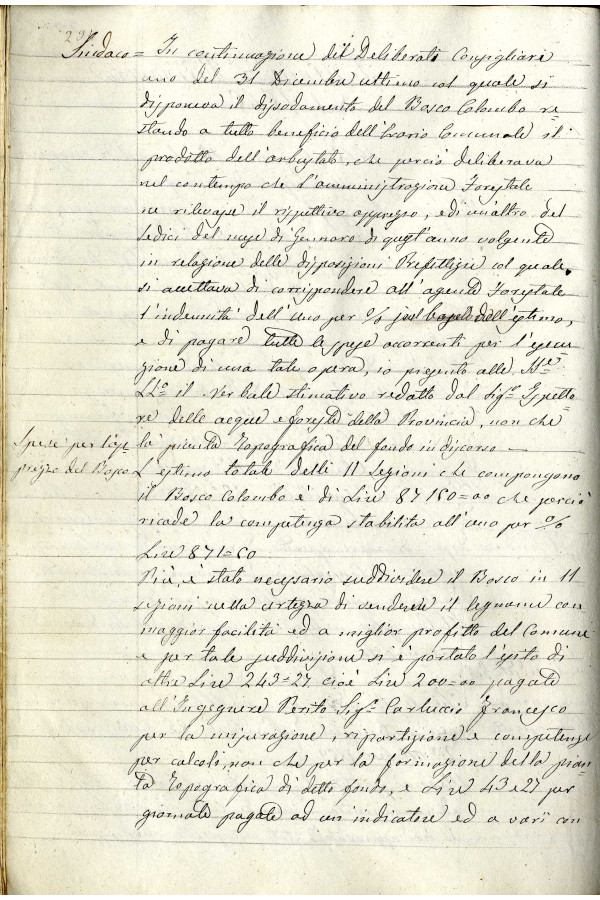 Sindaco = In continuazione del Deliberato Consigliare
uno del 31 Dicembre ultimo col quale si
disponeva il dissodamento del Bosco Colombo re
stando a tutto beneficio dell'Erario Comunale il
prodotto dell'arbustato, che perciò deliberava
nel contempo che l'amministrazione Forestale
ne rilevasse il rispettivo apprezzo, e di un'altro del
Sedici del mese di Gennaro di quest'anno volgente
in relazione delle disposizioni Prefettizie col quale
si accettava di corrispondere all'agente Forestale
l'indennità dell'uno per % sul dell'estimo,
e di pagare tutte le spese occorrenti per l'esecu
zione di una tale opera, io presento alle
il Verbale stimativo redatto dal Sigr. Ispetto=
re delle acque e foreste della Provincia, non che
Spese per l'ap= la pianta Topografica del fondo in discorso —
prezzo del Bosco L'estimo totale delli 11 sezioni che compongono
il Bosco Colombo è di Lire 87150=00 che perciò
ricade la competenza stabilita all'uno per %
Lire 871=50
Più, è stato necessario suddividere il Bosco in 11
sezioni nella certezza di vendere il legname con
maggior facilità ed a miglior profitto del Comune
e per tale suddivisione si è portato l'esito di
altre Lire 243=27 cioè Lire 200=00 pagate
all'Ingegnere Perito Sigr. Carluccio Francesco
per la misurazione, ripartizione e competenze
per calcoli, non che per la formazione della pian
ta Topografica di detto fondo, e Lire 43 e 27 per
giornate pagate ad un indicatore ed a vari con